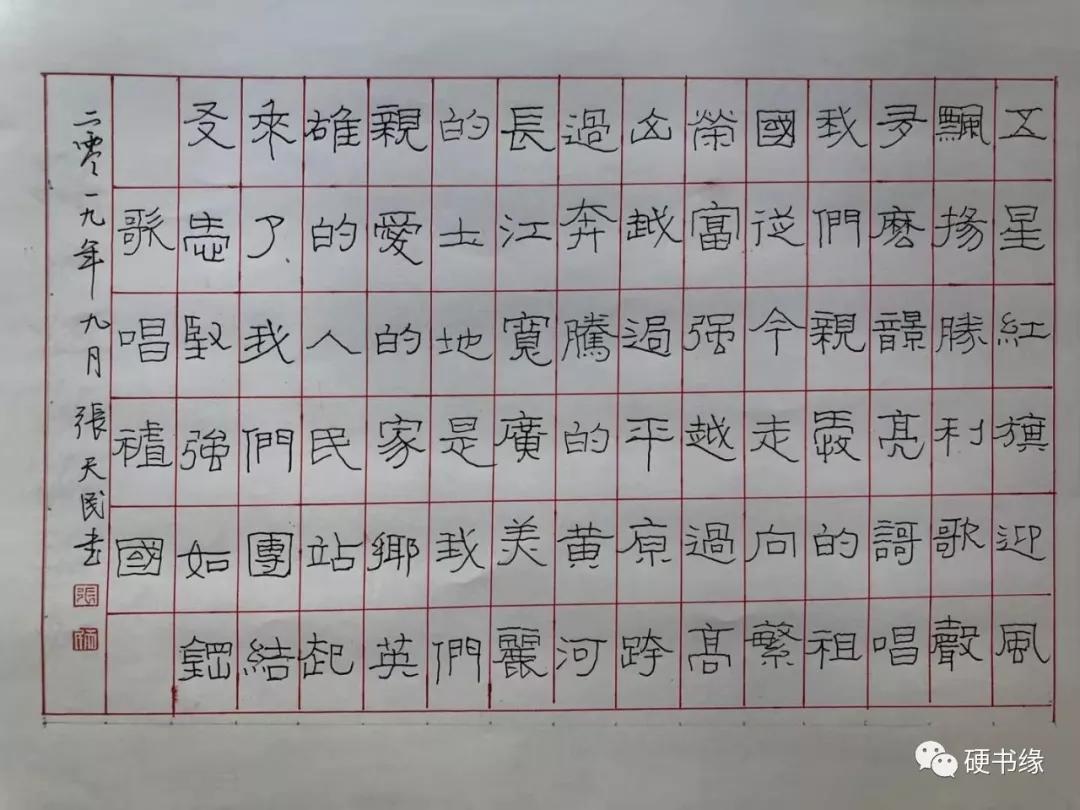 五星紅旗迎風
飄揚勝利歌聲
多麼響亮謌唱
我們親愛的祖
國從今走向繁
榮富强越過高
山越過平原跨
過奔騰的黄河
長江寬廣美麗
的土地是我們
親愛的家鄉英
雄的人民站起
來了我們團結
友愛堅強如鋼
歌唱祖國
二零一九年九月 張天民书
張
硬书缘